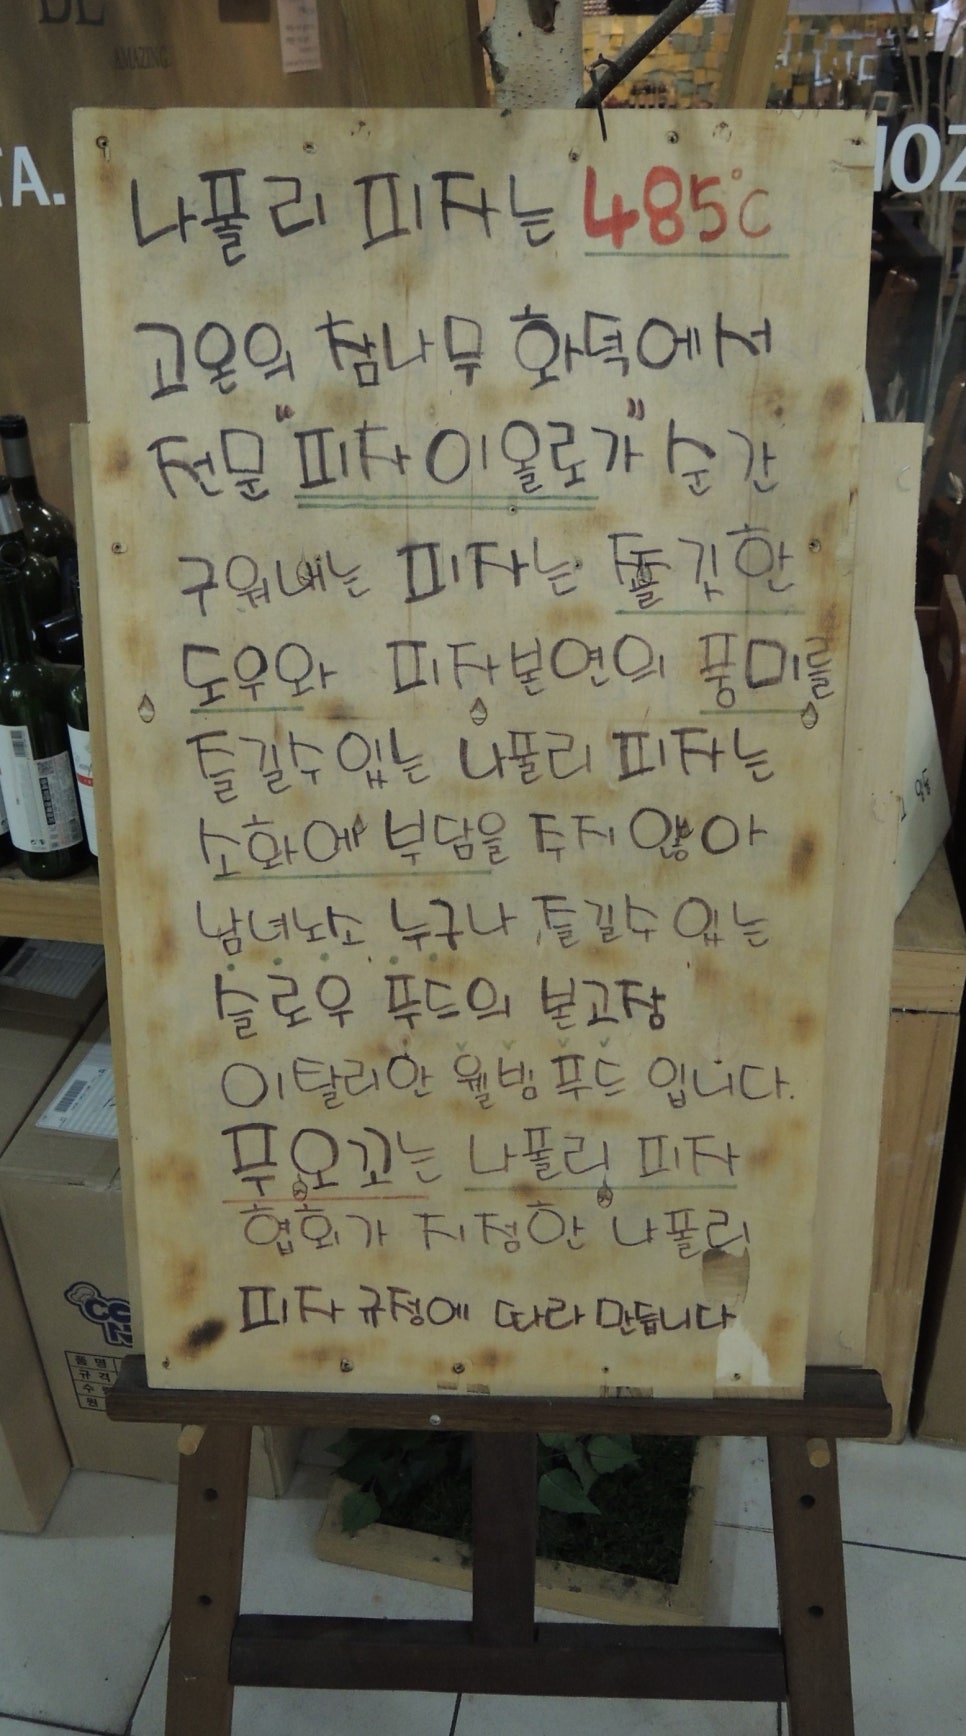 AMAZING
TA.
MOZ
나폴리 피자는 485°C
고온의 참나무 화덕에서
전문 "피자이올로가" 순간
구워내는 피자는 쫄깃한
도우와 피자본연의 풍미를
즐길수있는 나폴리 피자는
소화에 부담을 주지 않아
남녀노소 누구나 즐길수 있는
슬로우 푸드의 본고장
이탈리안 웰빙 푸드 입니다.
뿌오꼬는 나폴리 피자
협회가 지정한 나폴리
피자 규정에 따라 만듭니다
품명
규격